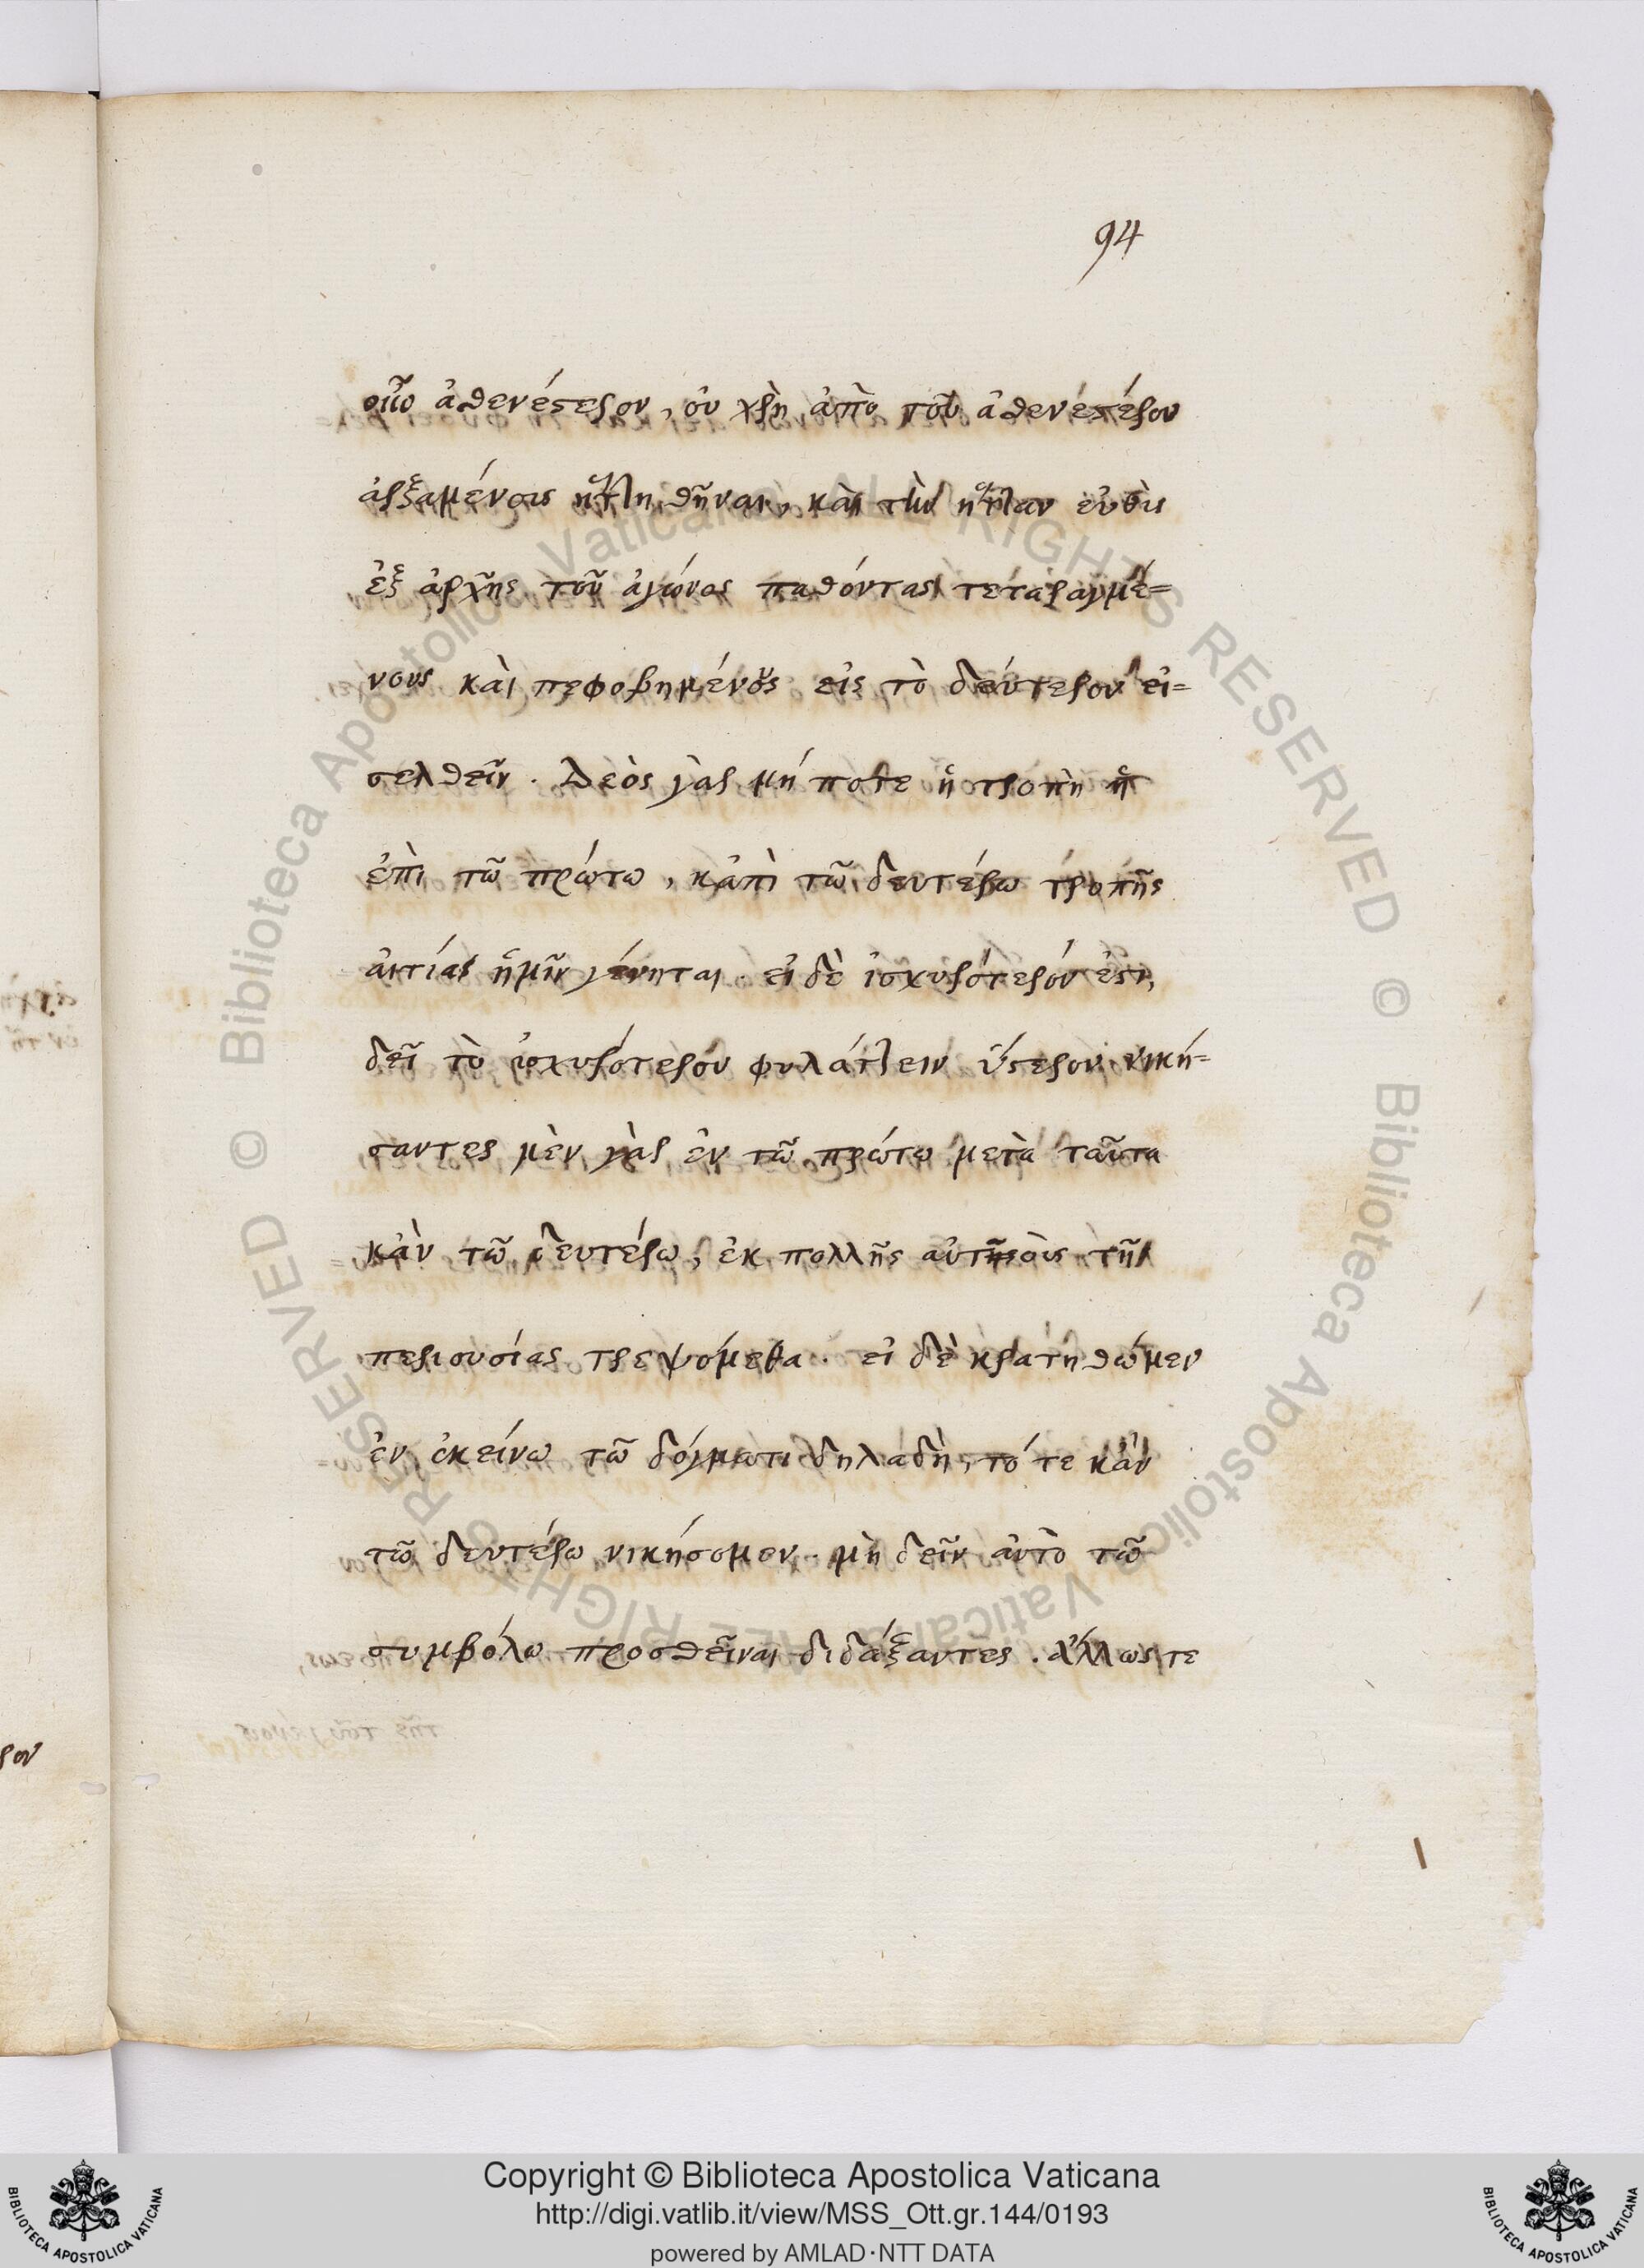 94
οὖν ἀσθενέστερον, οὐ χρὴ ἀπὸ τοῦ ἀσθενεστέρου
ἀρξαμένους ἡττηθῆναι, καὶ τὴν ἧτταν εὐθὺς
ἐξ ἀρχῆς τοῦ ἀγῶνος παθόντας τεταραγμέ=
νους καὶ πεφοβημένους εἰς τὸ δεύτερον εἰ=
σελθεῖν. Δεὸς γὰρ μή ποτε ἡ τροπὴ ἡ
ἐπὶ τῶ πρώτω, κἀπὶ τῶ δευτέρω τροπῆς
αἰτίας ἡμῖν γένηται. εἰ δὲ ἰσχυρότερόν ἐστι,
δεῖ τὸ ἰσχυρότερον φυλάττειν ὕστερον. νική=
σαντες μὲν γὰρ ἐν τῶ πρώτω μετὰ ταῦτα
κἀν τῶ δευτέρω, ἐκ πολλῆς αὐτοὺς τῆς
περιουσίας τρεψόμεθα. εἰ δὲ κρατηθώμεν
ἐν ἐκείνω τῶ δόγματι δηλαδὴ, τό τε κἀν
τῶ δευτέρω νικήσομεν. μὴ δεῖν αὐτὸ τῶ
συμβόλω προσθεῖναι διδάξαντες. ἄλλως τε
ρον
Copyright © Biblioteca Apostolica Vaticana
http://digi.vatlib.it/view/MSS_Ott.gr.144/0193
powered by AMLAD·NTT DATA
BIBLIOTECA APOSTOLICA VATICANA
BIBLIOTECA APOSTOLICA VATICANA
© Biblioteca Apostolica Vaticana ALL RIGHTS RESERVED
© Biblioteca Apostolica Vaticana ALL RIGHTS RESERVED